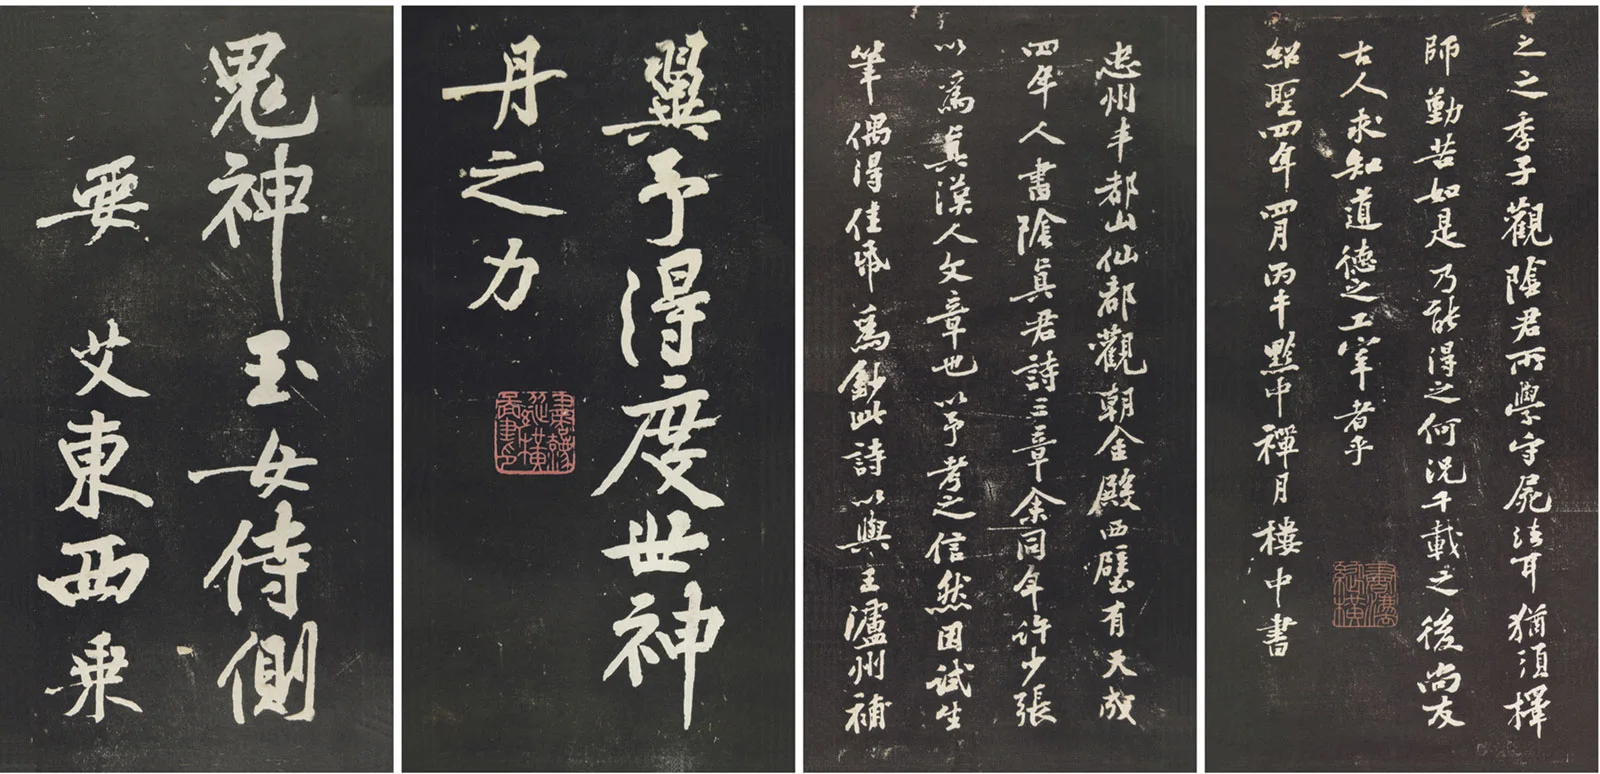 鬼神玉女侍側
要艾東西乗
翼予得度世神
丹之力
忠州丰都山仙都觀朝金殿西壁有天成
四年人書陰真君詩三章余同年許少張
以為真漢人文章也以予考之信然因試生
筆偶得佳紙為鈔此詩以與王瀘州補
之之季子觀陰君所學守屍法耳猶須擇
師勤苦如是乃能得之何況千載之後尚友
古人求知道德之工宰者乎
紹聖四年四月丙午黔中禪月樓中書